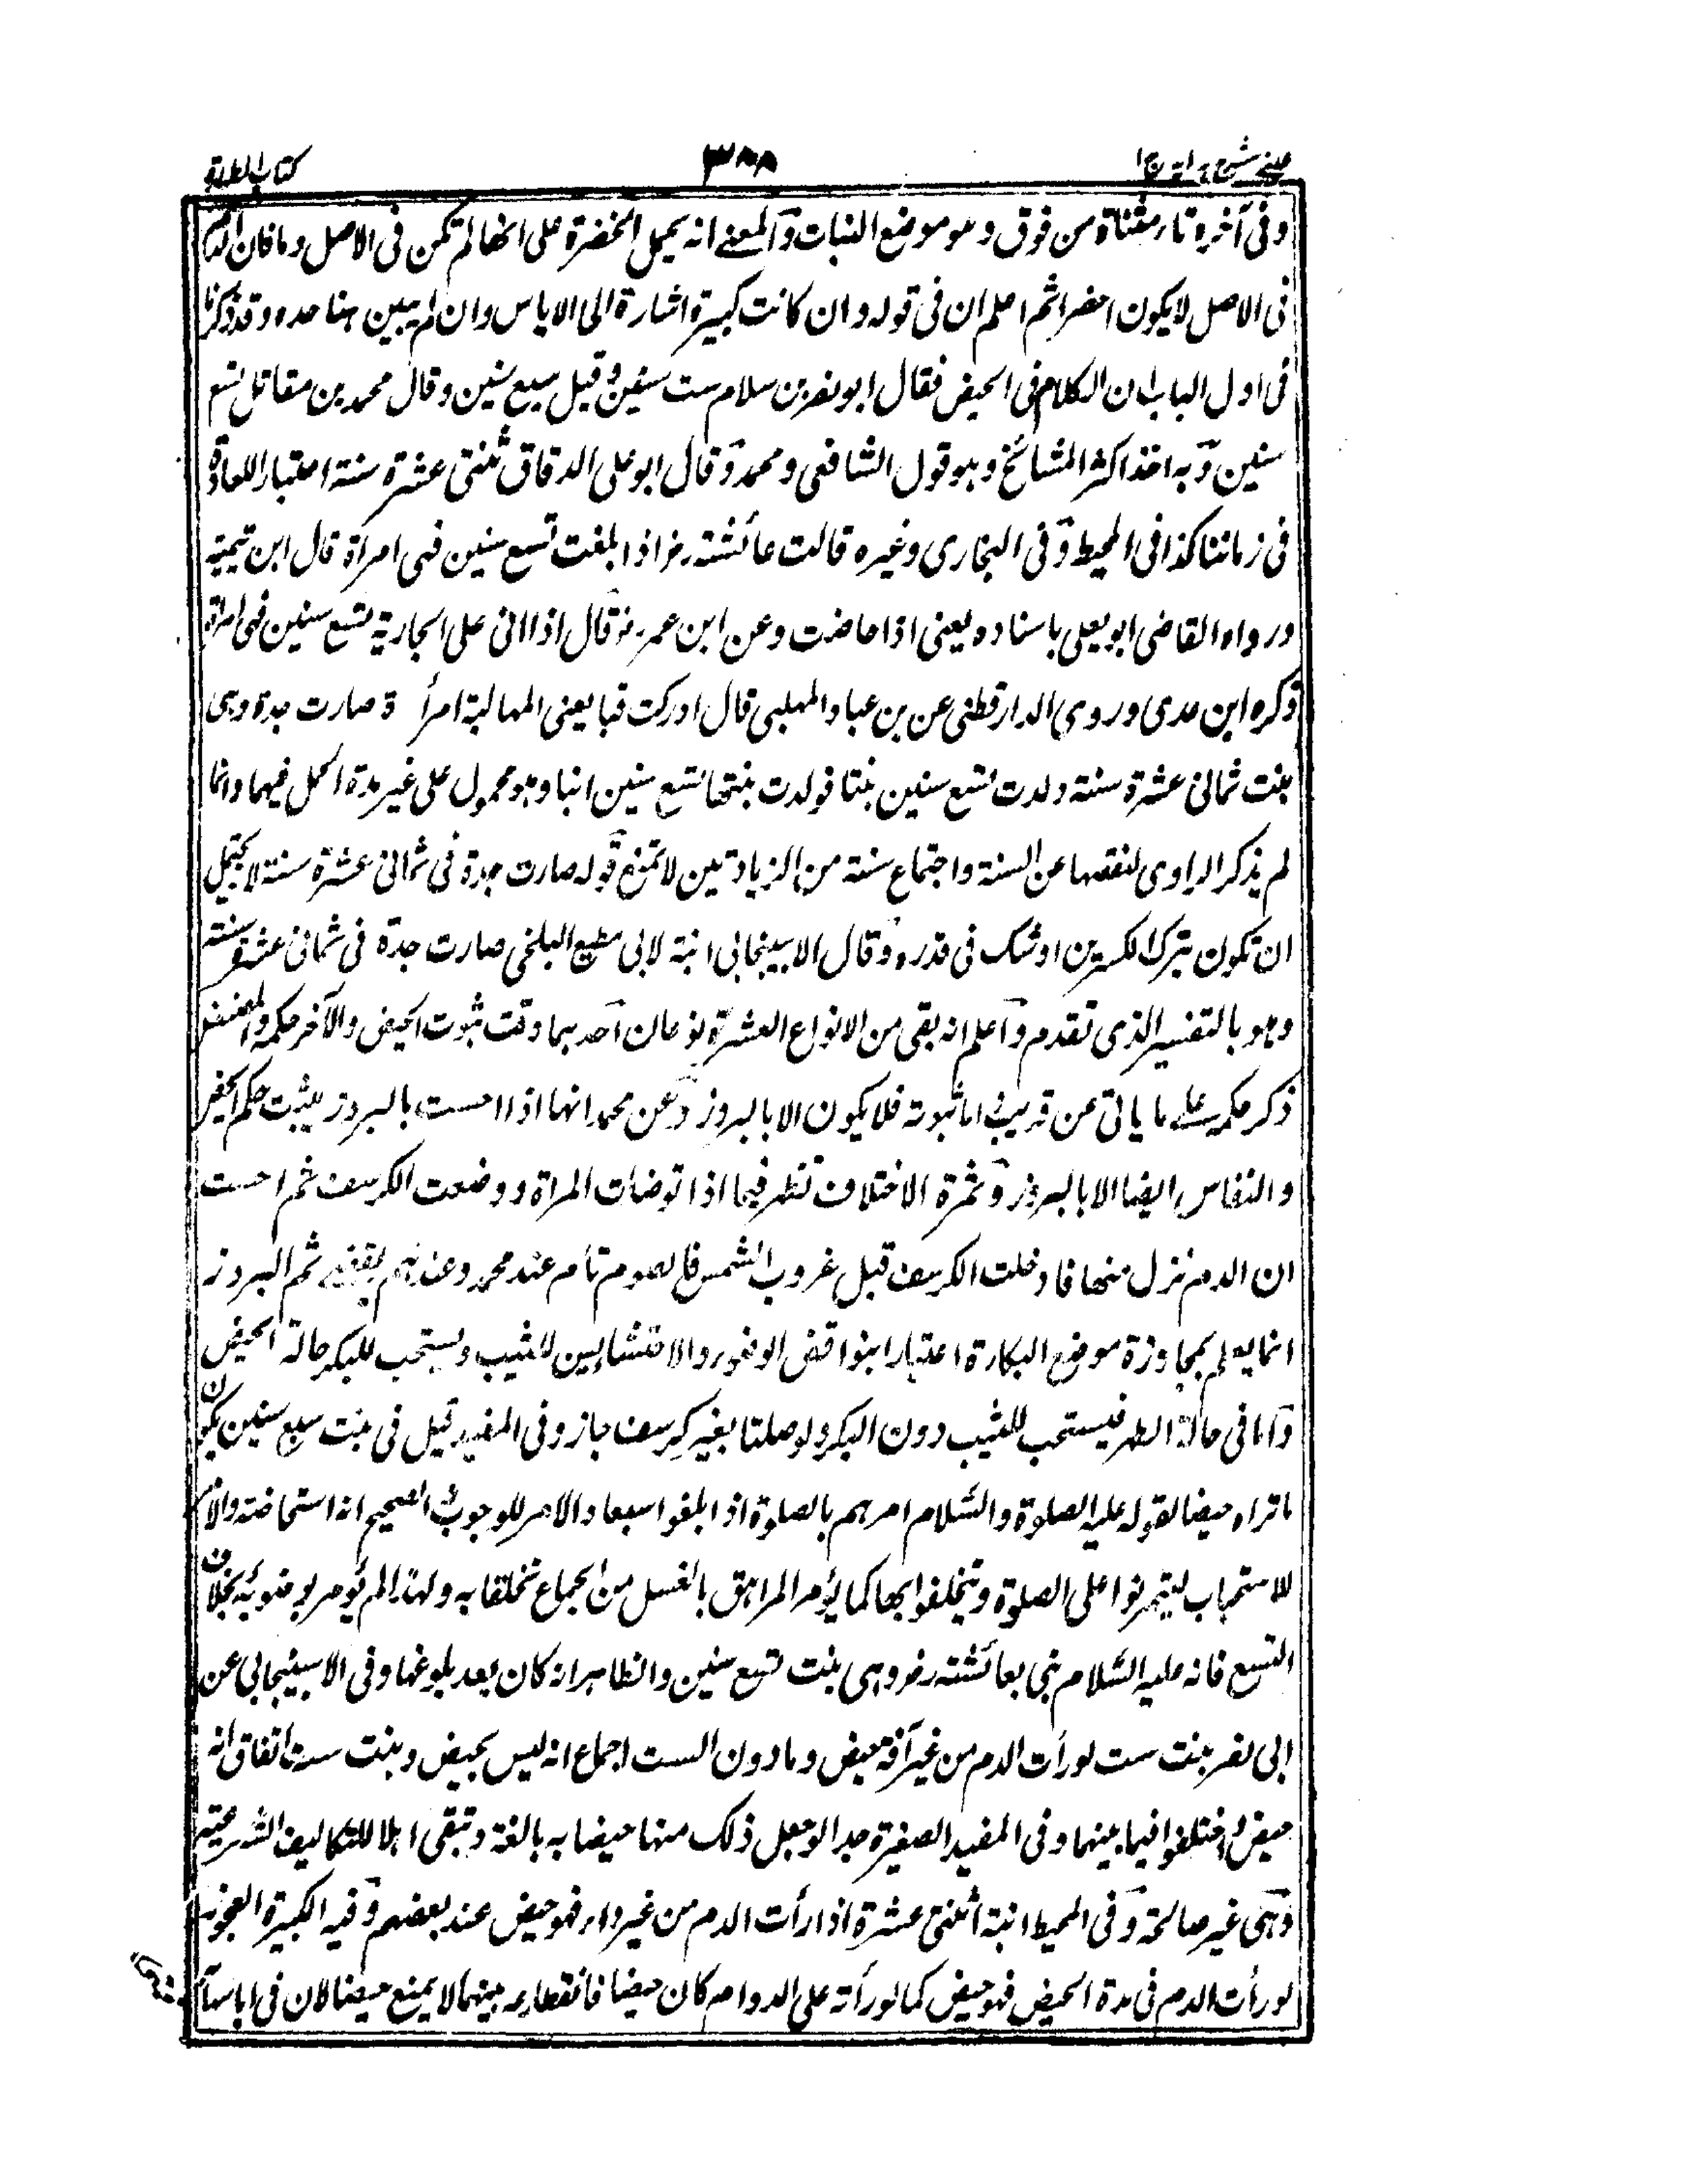 عينى شرح ہدایہ ج ۱
۳۸۸
كتاب الطهارة
وفى آخره تاء مثناة من فوق وهو موضع النبات والمعنے انه يحمل الخضرة على انها لم تكن فى الاصل وما كان الدم
فى الاصل لا يكون اخضر ثم اعلم ان فى قوله وان كانت كبيرة اشارة الى الاياس وان لم يبين هنا حده وقد ذكرنا
فى اول الباب ان الكلام فى الحيض فقال ابو نصر بن سلام ست سنين وقيل سبع سنين وقال محمد بن مقاتل تسع
سنين وبه اخذ اكثر المشائخ وهو قول الشافعى ومحمد وقال ابو على الدقاق ثنتى عشرة سنة اعتبارا للعادة
فى زماننا كذا فى المحيط وفى البخارى وغيره قالت عائشة رض اذا بلغت تسع سنين فهى امرأة قال ابن تيمية
ورواه القاضى ابو يعلى باسناده يعنى اذا حاضت وعن ابن عمر رض قال اذا اتى على الجارية تسع سنين فهى امرأة
ذكره ابن عدى وروى الدارقطنى عن بن عباد المهلبى قال ادركت فينا يعنى المهالبة امرأ ة صارت جدة وهى
بنت ثمانى عشرة سنة ولدت لتسع سنين بنتا فولدت بنتها لتسع سنين ابنا وهو محمول على غير مدة الحمل فيهما وانما
لم يذكر الراوى لنقصها عن السنة واجتماع سنة من الزيادتين لا تمنع قوله صارت جدة فى ثمانى عشرة سنة لا يحتمل
ان تكون بترك الكسرين او شك فى قدره وقال الاسبيجابى ابنة لابى مطيع البلخى صارت جدة فى ثمانى عشرة سنة
وهو بالتفسير الذى تقدم واعلم انه بقى من الانواع العشرة نوعان احدهما وقت ثبوت الحيض والآخر حكمه والمصنف
ذكر حكمه علے ما ياتى عن قريب اما ثبوته فلا يكون الا بالبروز وعن محمد انها اذا احست بالبروز يثبت حكم الحيض
والنفاس ايضا الا بالبروز وثمرة الاختلاف تظهر فيما اذا توضات المرأة ووضعت الكرسف ثم احست
ان الدم نزل منها فادخلت الكرسف قبل غروب الشمس فالصوم تام عند محمد وعندهم تقضے ثم البروز
انما يعلم بمجاوزة موضع البكارة اعتبارا بنواقض الوضوء والاحتشاء يسن للثيب ويستحب للبكر حالة الحيض
واما فى حالة الطهر فيستحب للثيب دون البكر ولو صلتا بغير كرسف جاز وفى المفيد قيل فى بنت سبع سنين يكون
ما تراه حيضا لقوله عليه الصلوة والسلام امرهم بالصلوة اذا بلغوا سبعا والامر للوجوب والصحيح انه استحاضة والامر
للاستحباب ليتمرنوا على الصلوة ويتخلقوا بها كما يؤمر المراهق بالغسل من الجماع تخلقا به ولهذا لم يؤمر بوضوئه بخلاف
التسع فانه عليه السلام بنى بعائشة رض وهى بنت تسع سنين والظاهر انه كان بعد بلوغها وفى الاسبيجابى عن
ابى نصر بنت ست لو رأت الدم من غير آفة حيض وما دون الست اجماع انه ليس بحيض وبنت ست اتفاق انه
حيض واختلفوا فيما بينهما وفى المفيد الصغيرة جدا لو جعل ذلك منها حيضا به بالغة وتبقى اهلا للتكاليف الشرعية
وهى غير صالحة وفى المحيط ابنة اثنتى عشرة اذا رأت الدم من غير داء فهو حيض عند بعضهم وفيه الكبيرة العجوز
لو رأت الدم فى مدة الحيض فهو حيض كما لو رأته على الدوام كان حيضا فانقطاعه بينهما لا يمنع حيضا لان فى اياسها